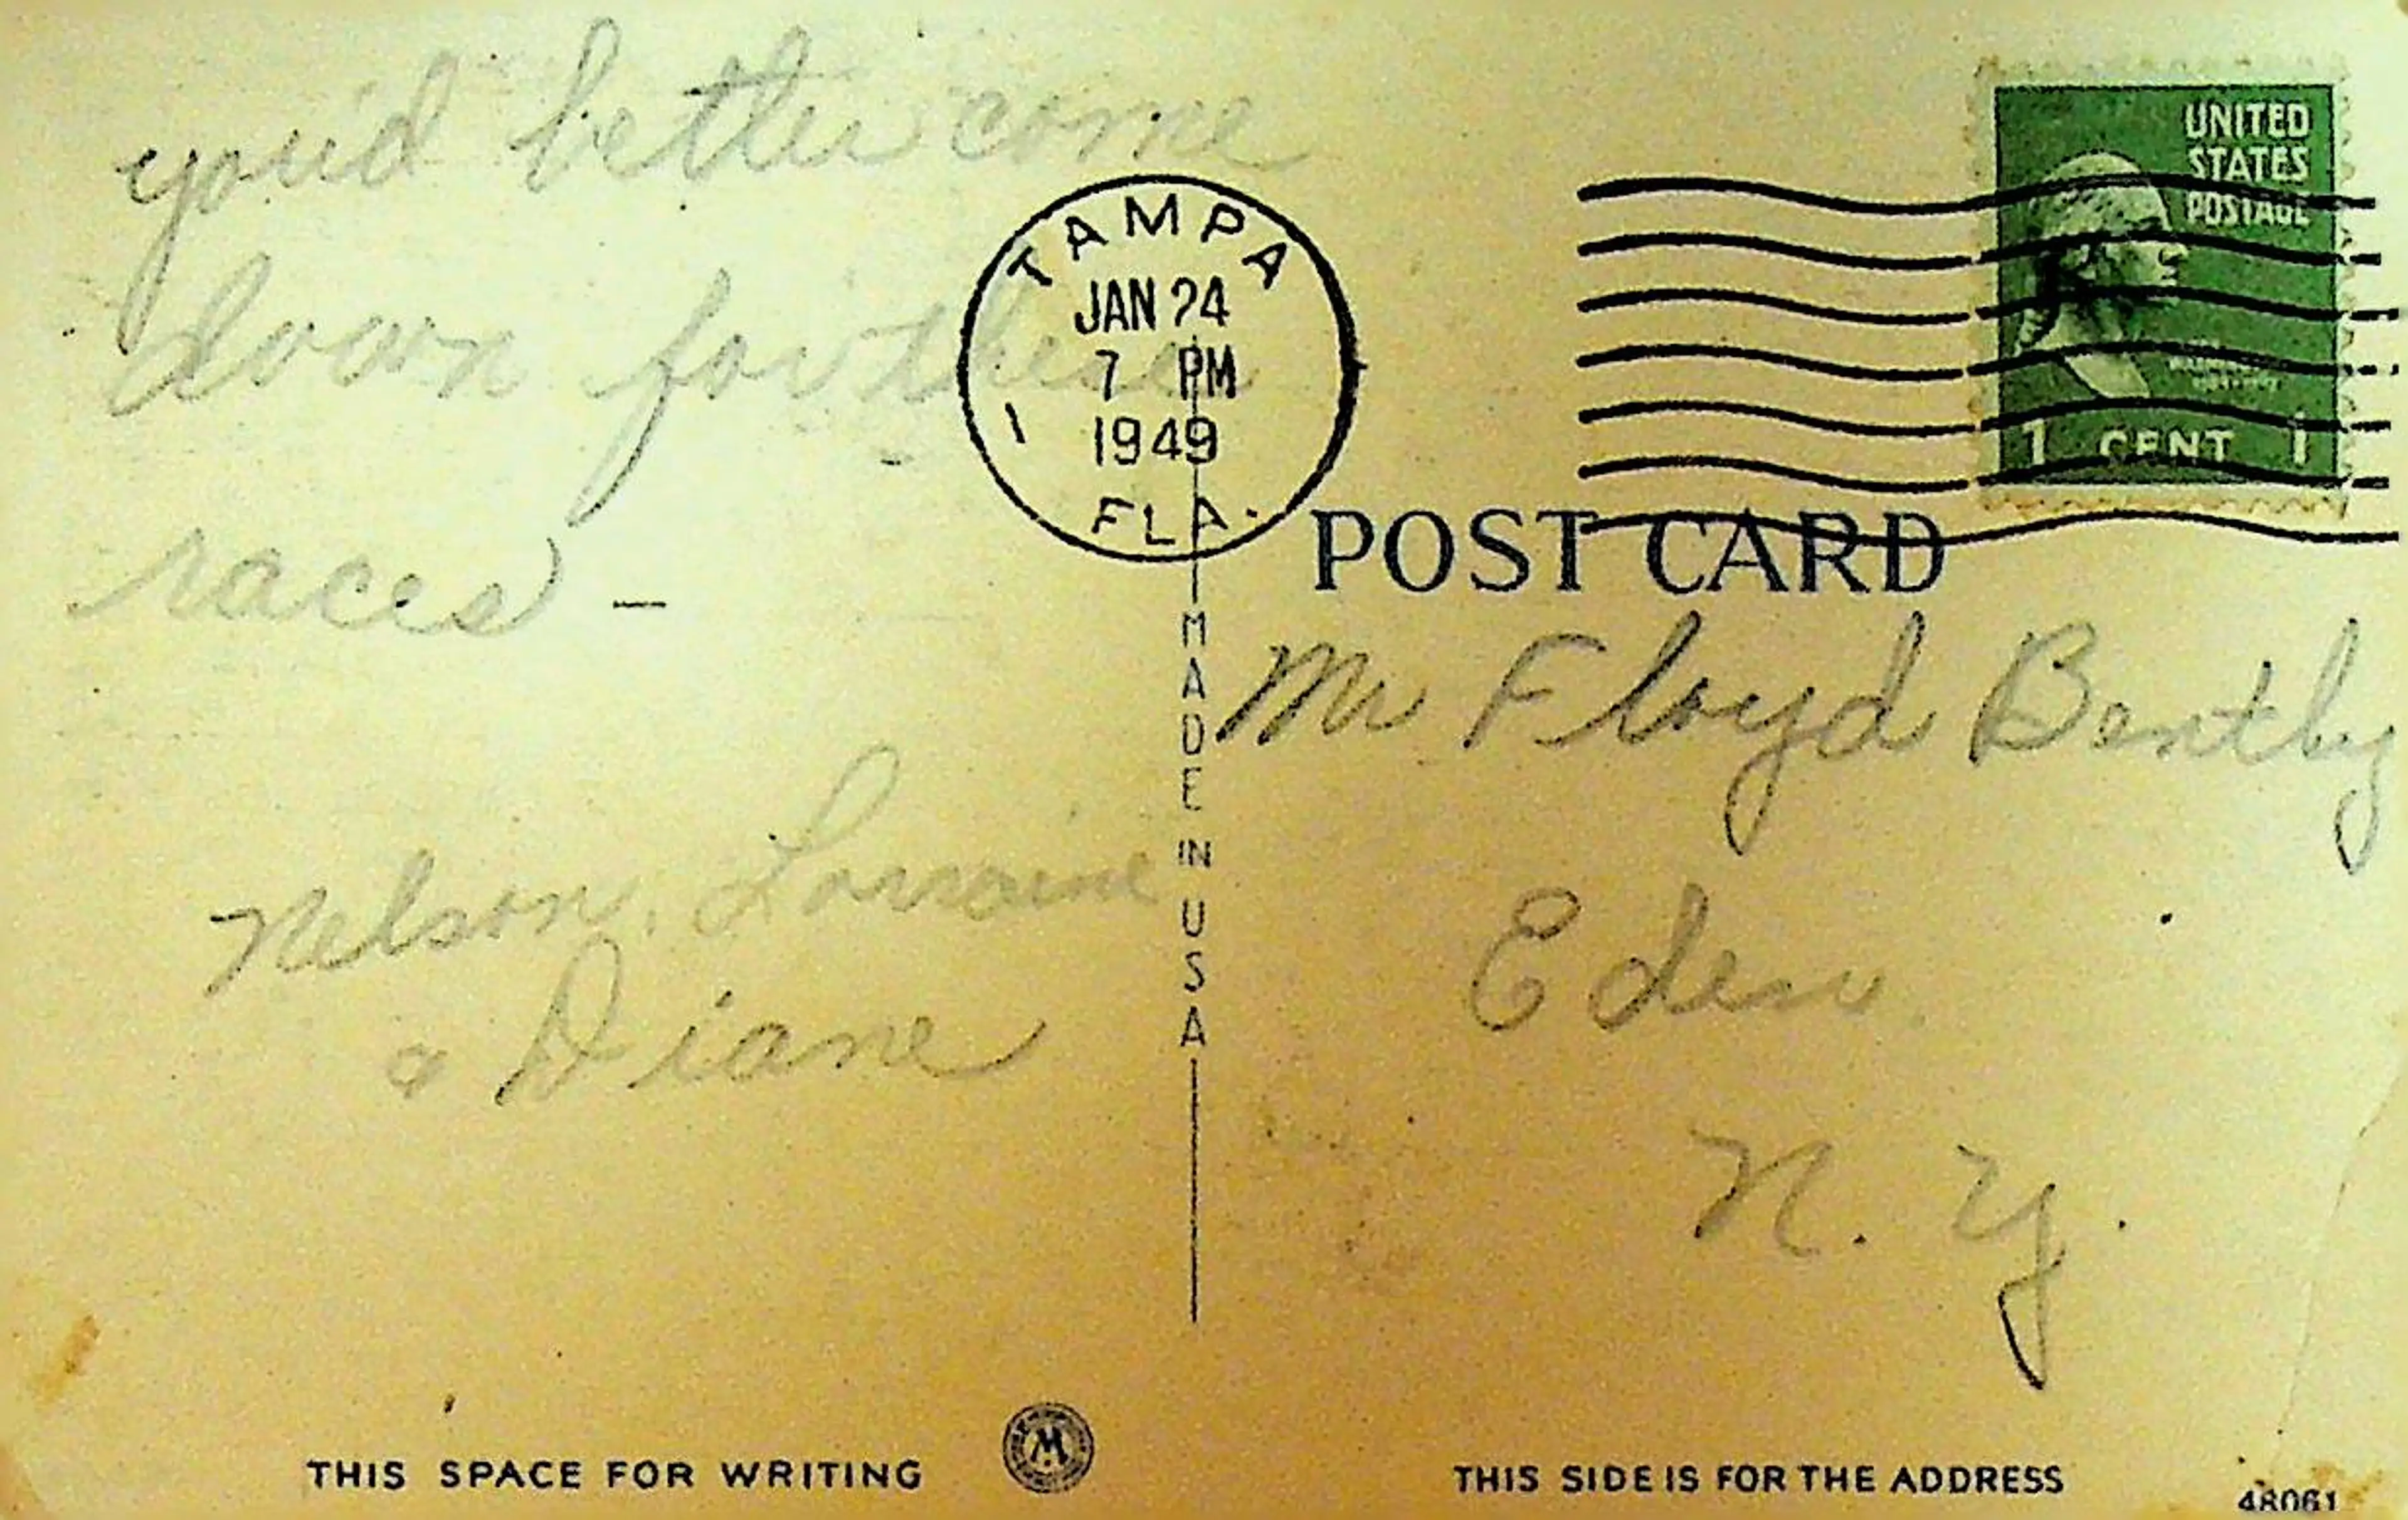 you'd better come
down for these
races —
Nelson, Lorraine
& Diane
TAMPA
JAN 24
7 PM
1949
1
FLA.
UNITED
STATES
POSTAGE
1 CENT 1
POST CARD
MADE IN USA
Mr Floyd Bently
Eden
N. Y.
THIS SPACE FOR WRITING
W
THIS SIDE IS FOR THE ADDRESS
48061